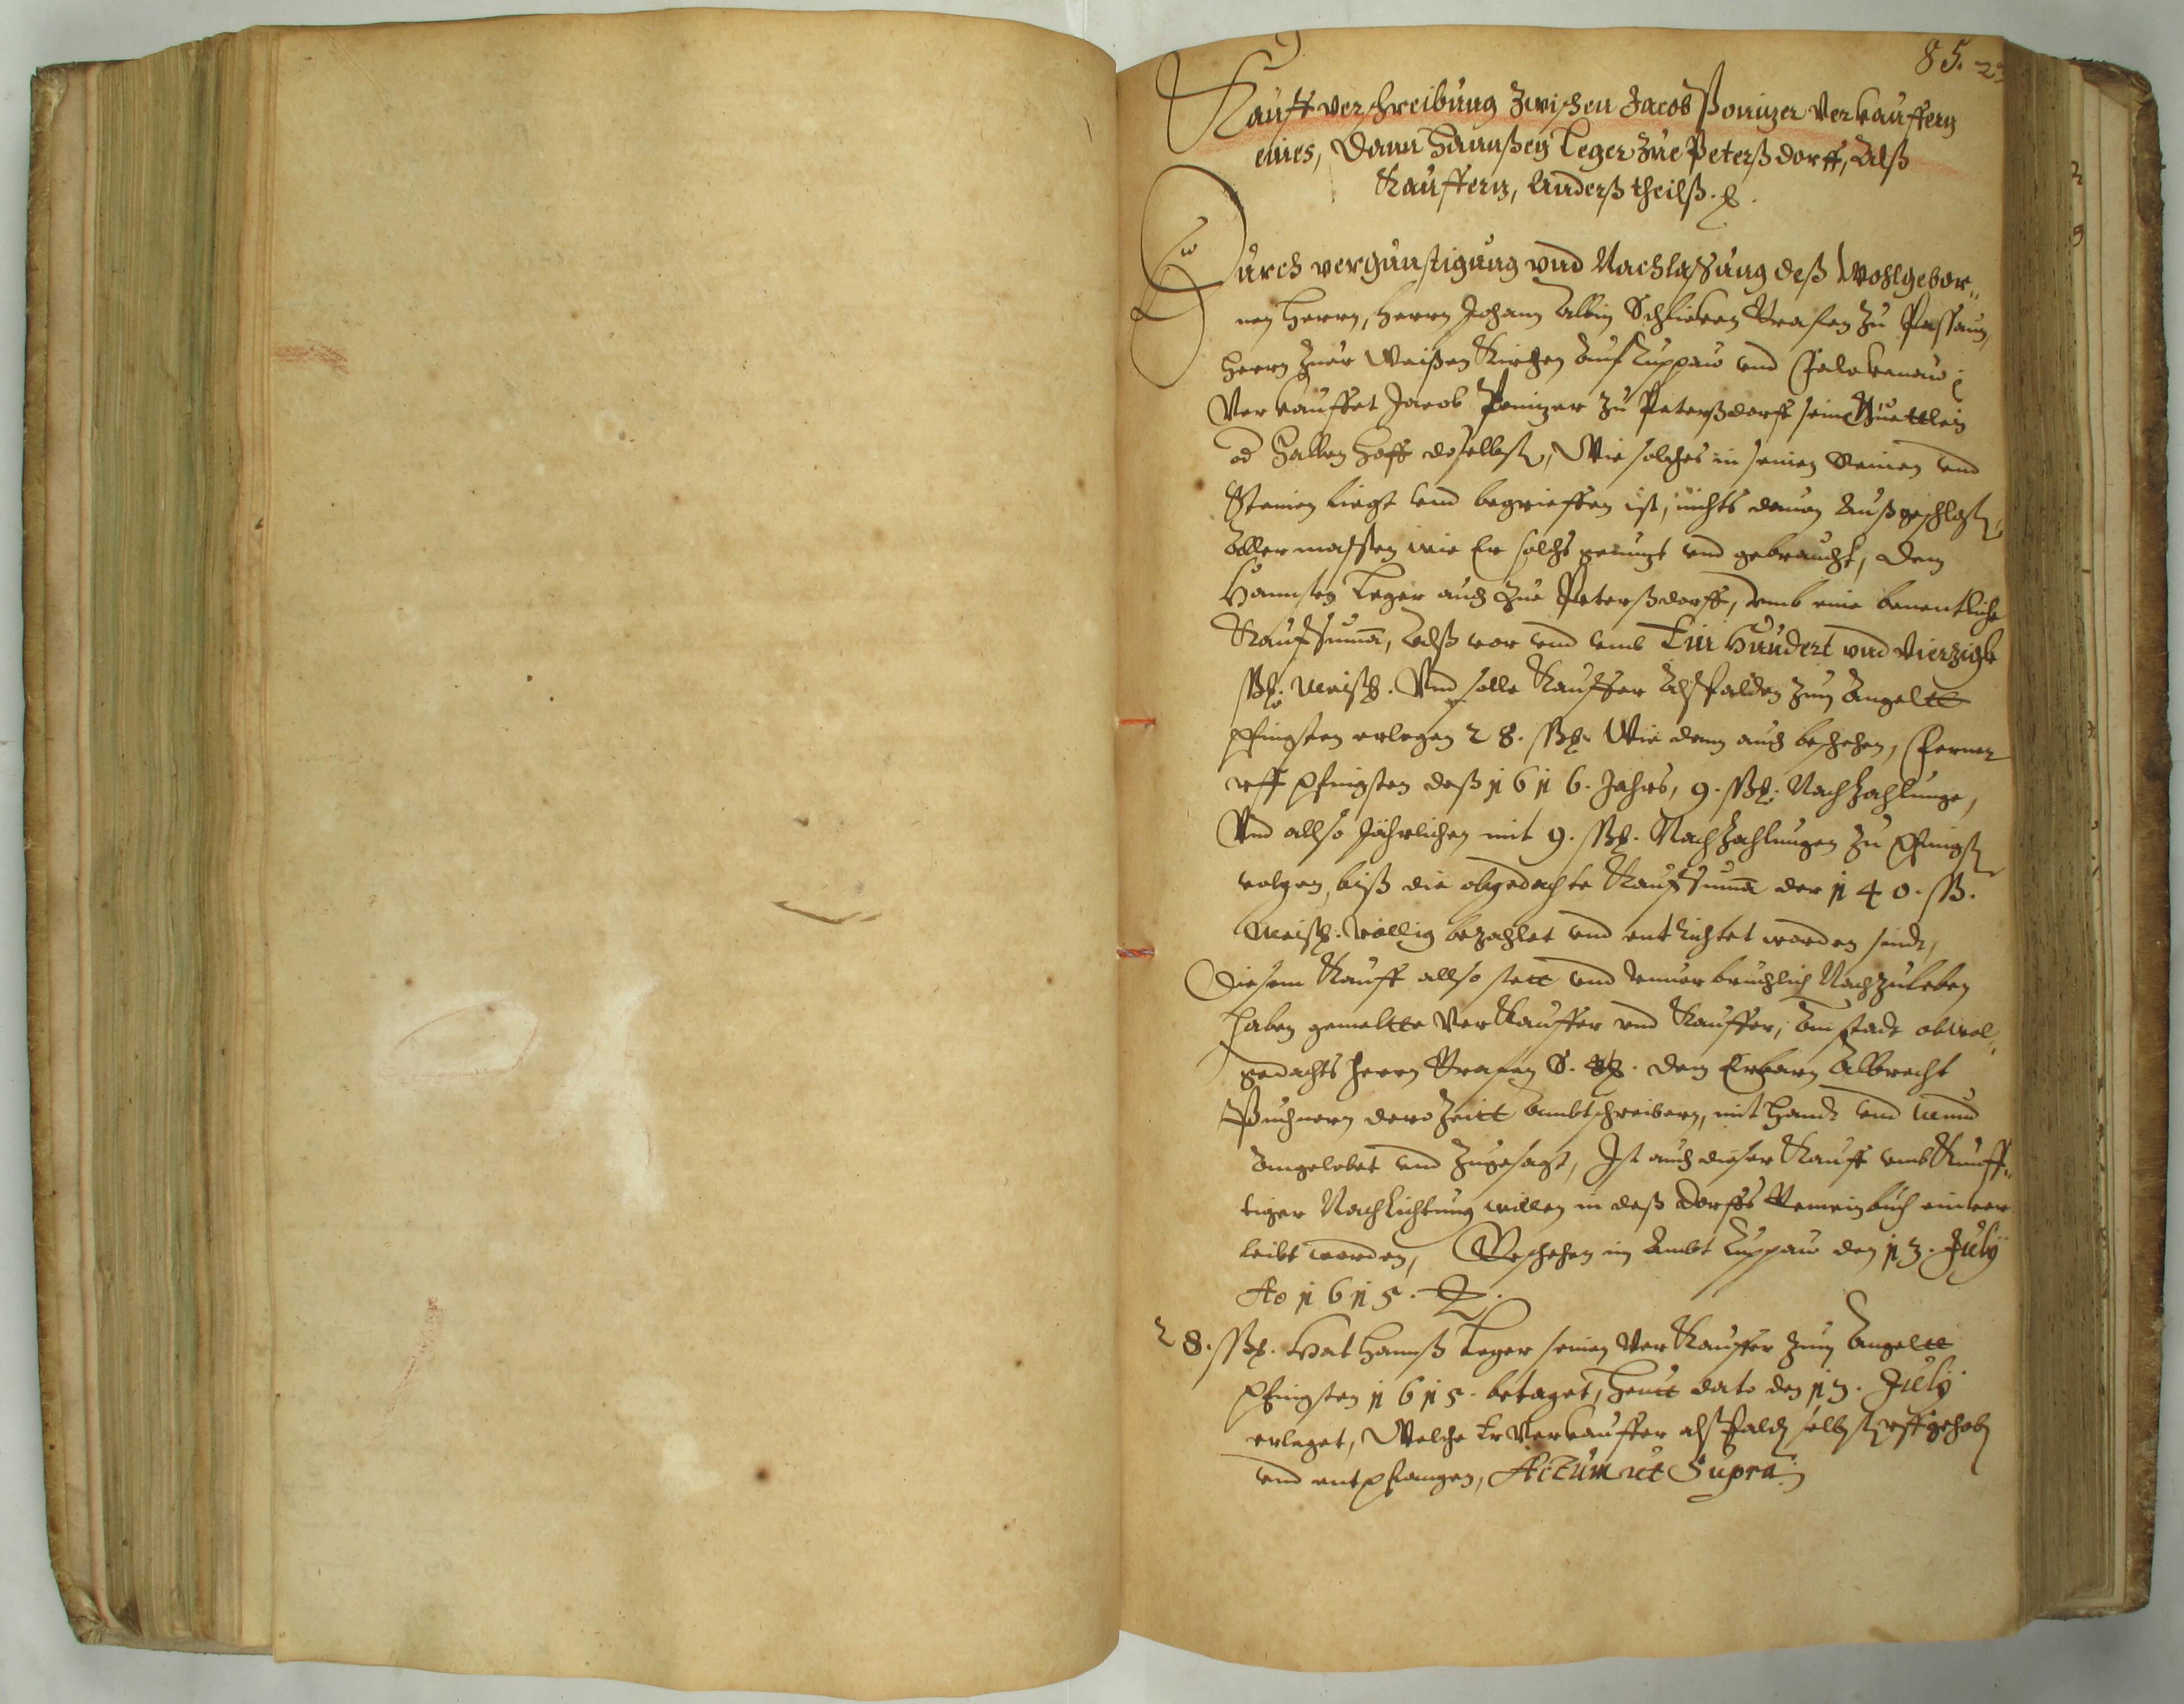 85.
Kauffverschreibung zwischen Jacob Ponizer Verkauffern
eines, Dann Hannßen Leger zue Peterßdorff, Alß
Kauffern, Anderß theilß.
Durch vergünstigung vnd Nachlaßung deß Wohlgebor„
nen Herrn, Herrn Johann Albin Schlicken Graffen zu Passaun,
Herrn zuer Weißen Kirchen auf Luppaw vnd Falckenaw
Verkauffet Jacob Ponizer zu Peterßdorff sein Guettlein
od Halben Hoff doselbst, Wie solches in seinen Reinen vnd
Steinen liegt vnd begrieffen ist, nichts dauon Außgeschlosn,
Aller massen wie Er solchs genuzt vnd gebraucht, dem
Hannsen Leger auch zue Peterßdorff, vmb eine benentliche
Kaufsuma, Alß vor vnd vmb Ein Hundert vnd Vierzigk
ßß. Meiß. Vnd solle Kauffer Alßbalden zum Angeltt
Pfingsten erlegen 28. ßß. Wie dann auch beschehen, Ferner
vff Pfingsten deß 1616. Jahrs, 9. ßß. Nachzahlunge,
Vnd allso Jährlichen mit 9. ßß. Nachzahlungen zu Pfingstn
volgen, biß die obgedachte Kaufsuma der 140. ßß.
Meiß. völlig bezahlet vnd entrichtet worden sindt,
Diesem Kauff allso stett vnd vnuerbruchlich Nachzuleben
haben gemeltte Verkauffer vnd Kauffer, Anstadt obwol„
gedachts Herrn Graffen S. G. dem Erbarn Albrecht
Puchnern dero Zeitt Ambtschreibern, mit Handt vnd Mund
Angelobet vnd Zugesagt, Ist auch dieser Kauff vmb Kunff„
tiger Nachrichtung willen in deß Dorffs Gemeinbuch einver
leibt worden, Geschehen im Ambt Luppaw den 13. July
Ao 1615.
28. ßß. Hat Hannß Leger seinen Verkauffer zum Angeltt
Pfingsten 1615. betaget, Heutt dato den 13. July
erleget, Welche Er Verkauffer alßbald selbst vffgehobn
vnd entpfangen, Actum ut Supra